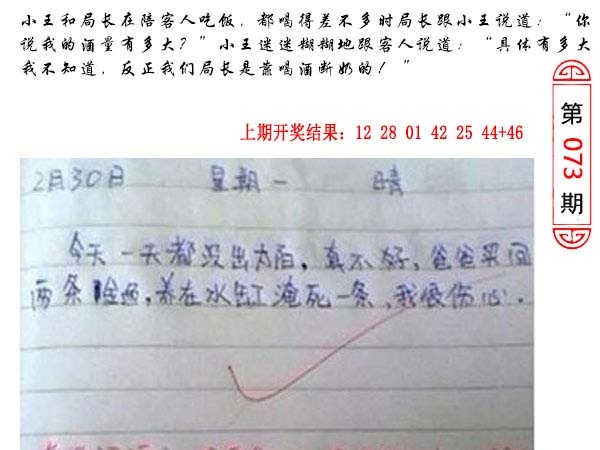 小王和局长在陪客人吃饭，都喝得差不多时局长跟小王说道：“你
说我的酒量有多大？”小王迷迷糊糊地跟客人说道：“具体有多大
我不知道，反正我们局长是靠喝酒断奶的！”
上期开奖结果：12 28 01 42 25 44+46
第
073
期
2月30日 星期一 晴
今天一天都没出太阳，真不好，爸爸买回
两条金鱼，养在水缸淹死一条，我很伤心．